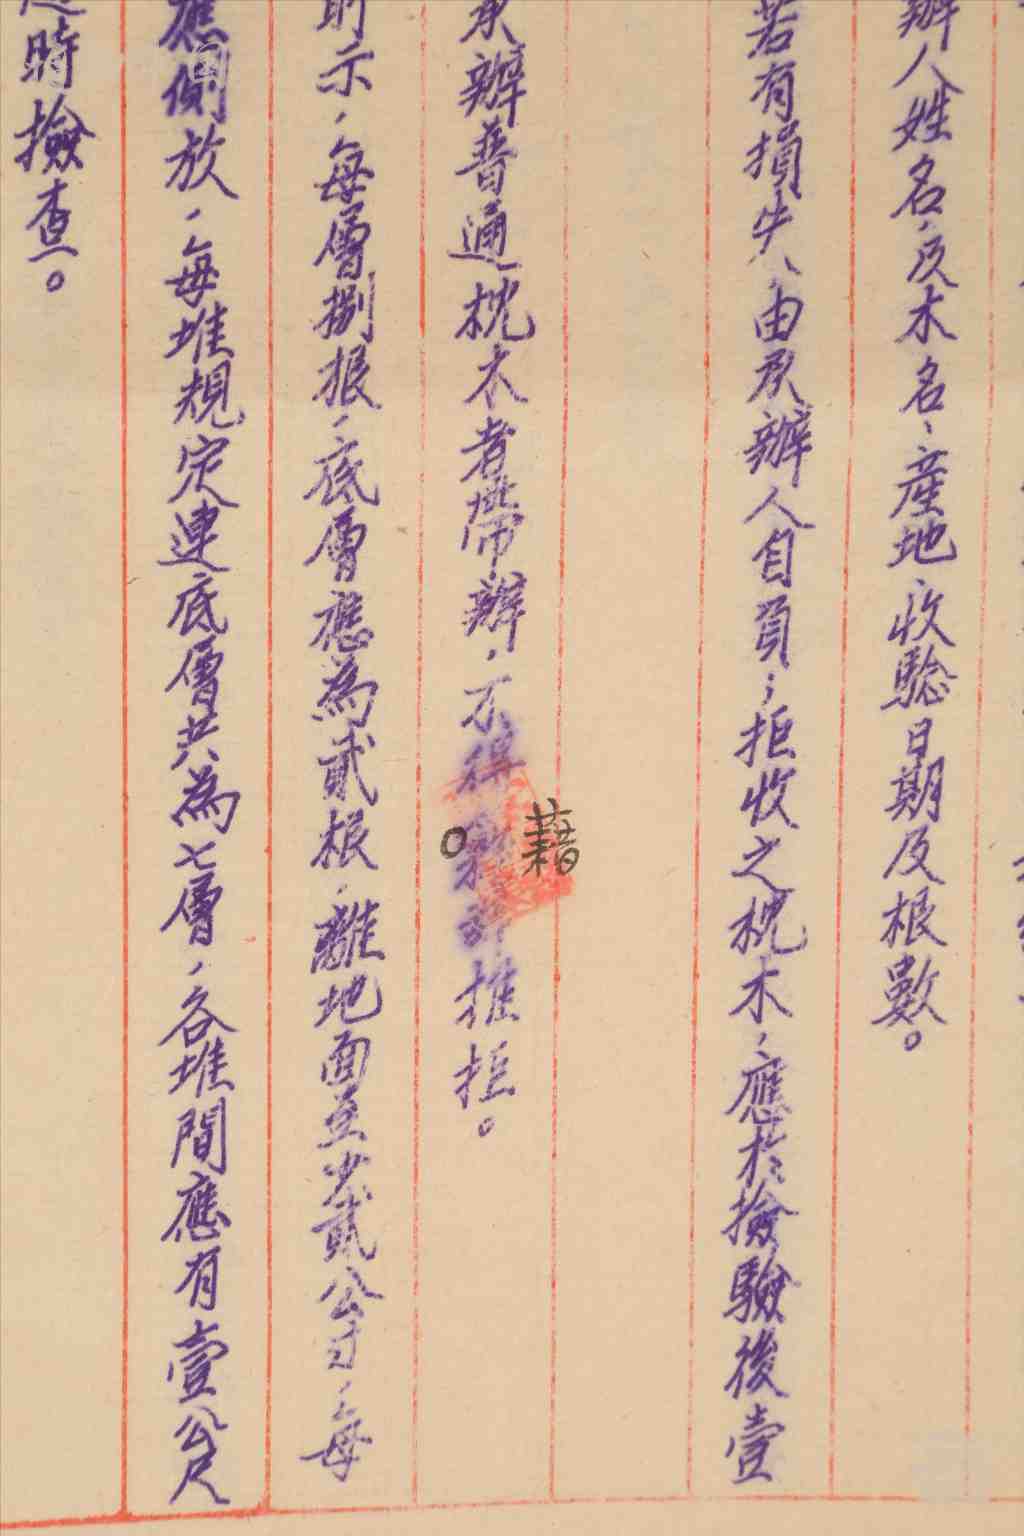 辦人姓名、及木名、產地、收驗日期及根數。
若有損失、由承辦人自負；拒收之枕木，應於檢驗後壹
承辦普通枕木者帶辦，不得藉辭推拒。
所示，每層捌根，底層應為貳根，離地面至少貳公寸，每
應側放，每堆規定連底層共為七層，各堆間應有壹公尺
時檢查。